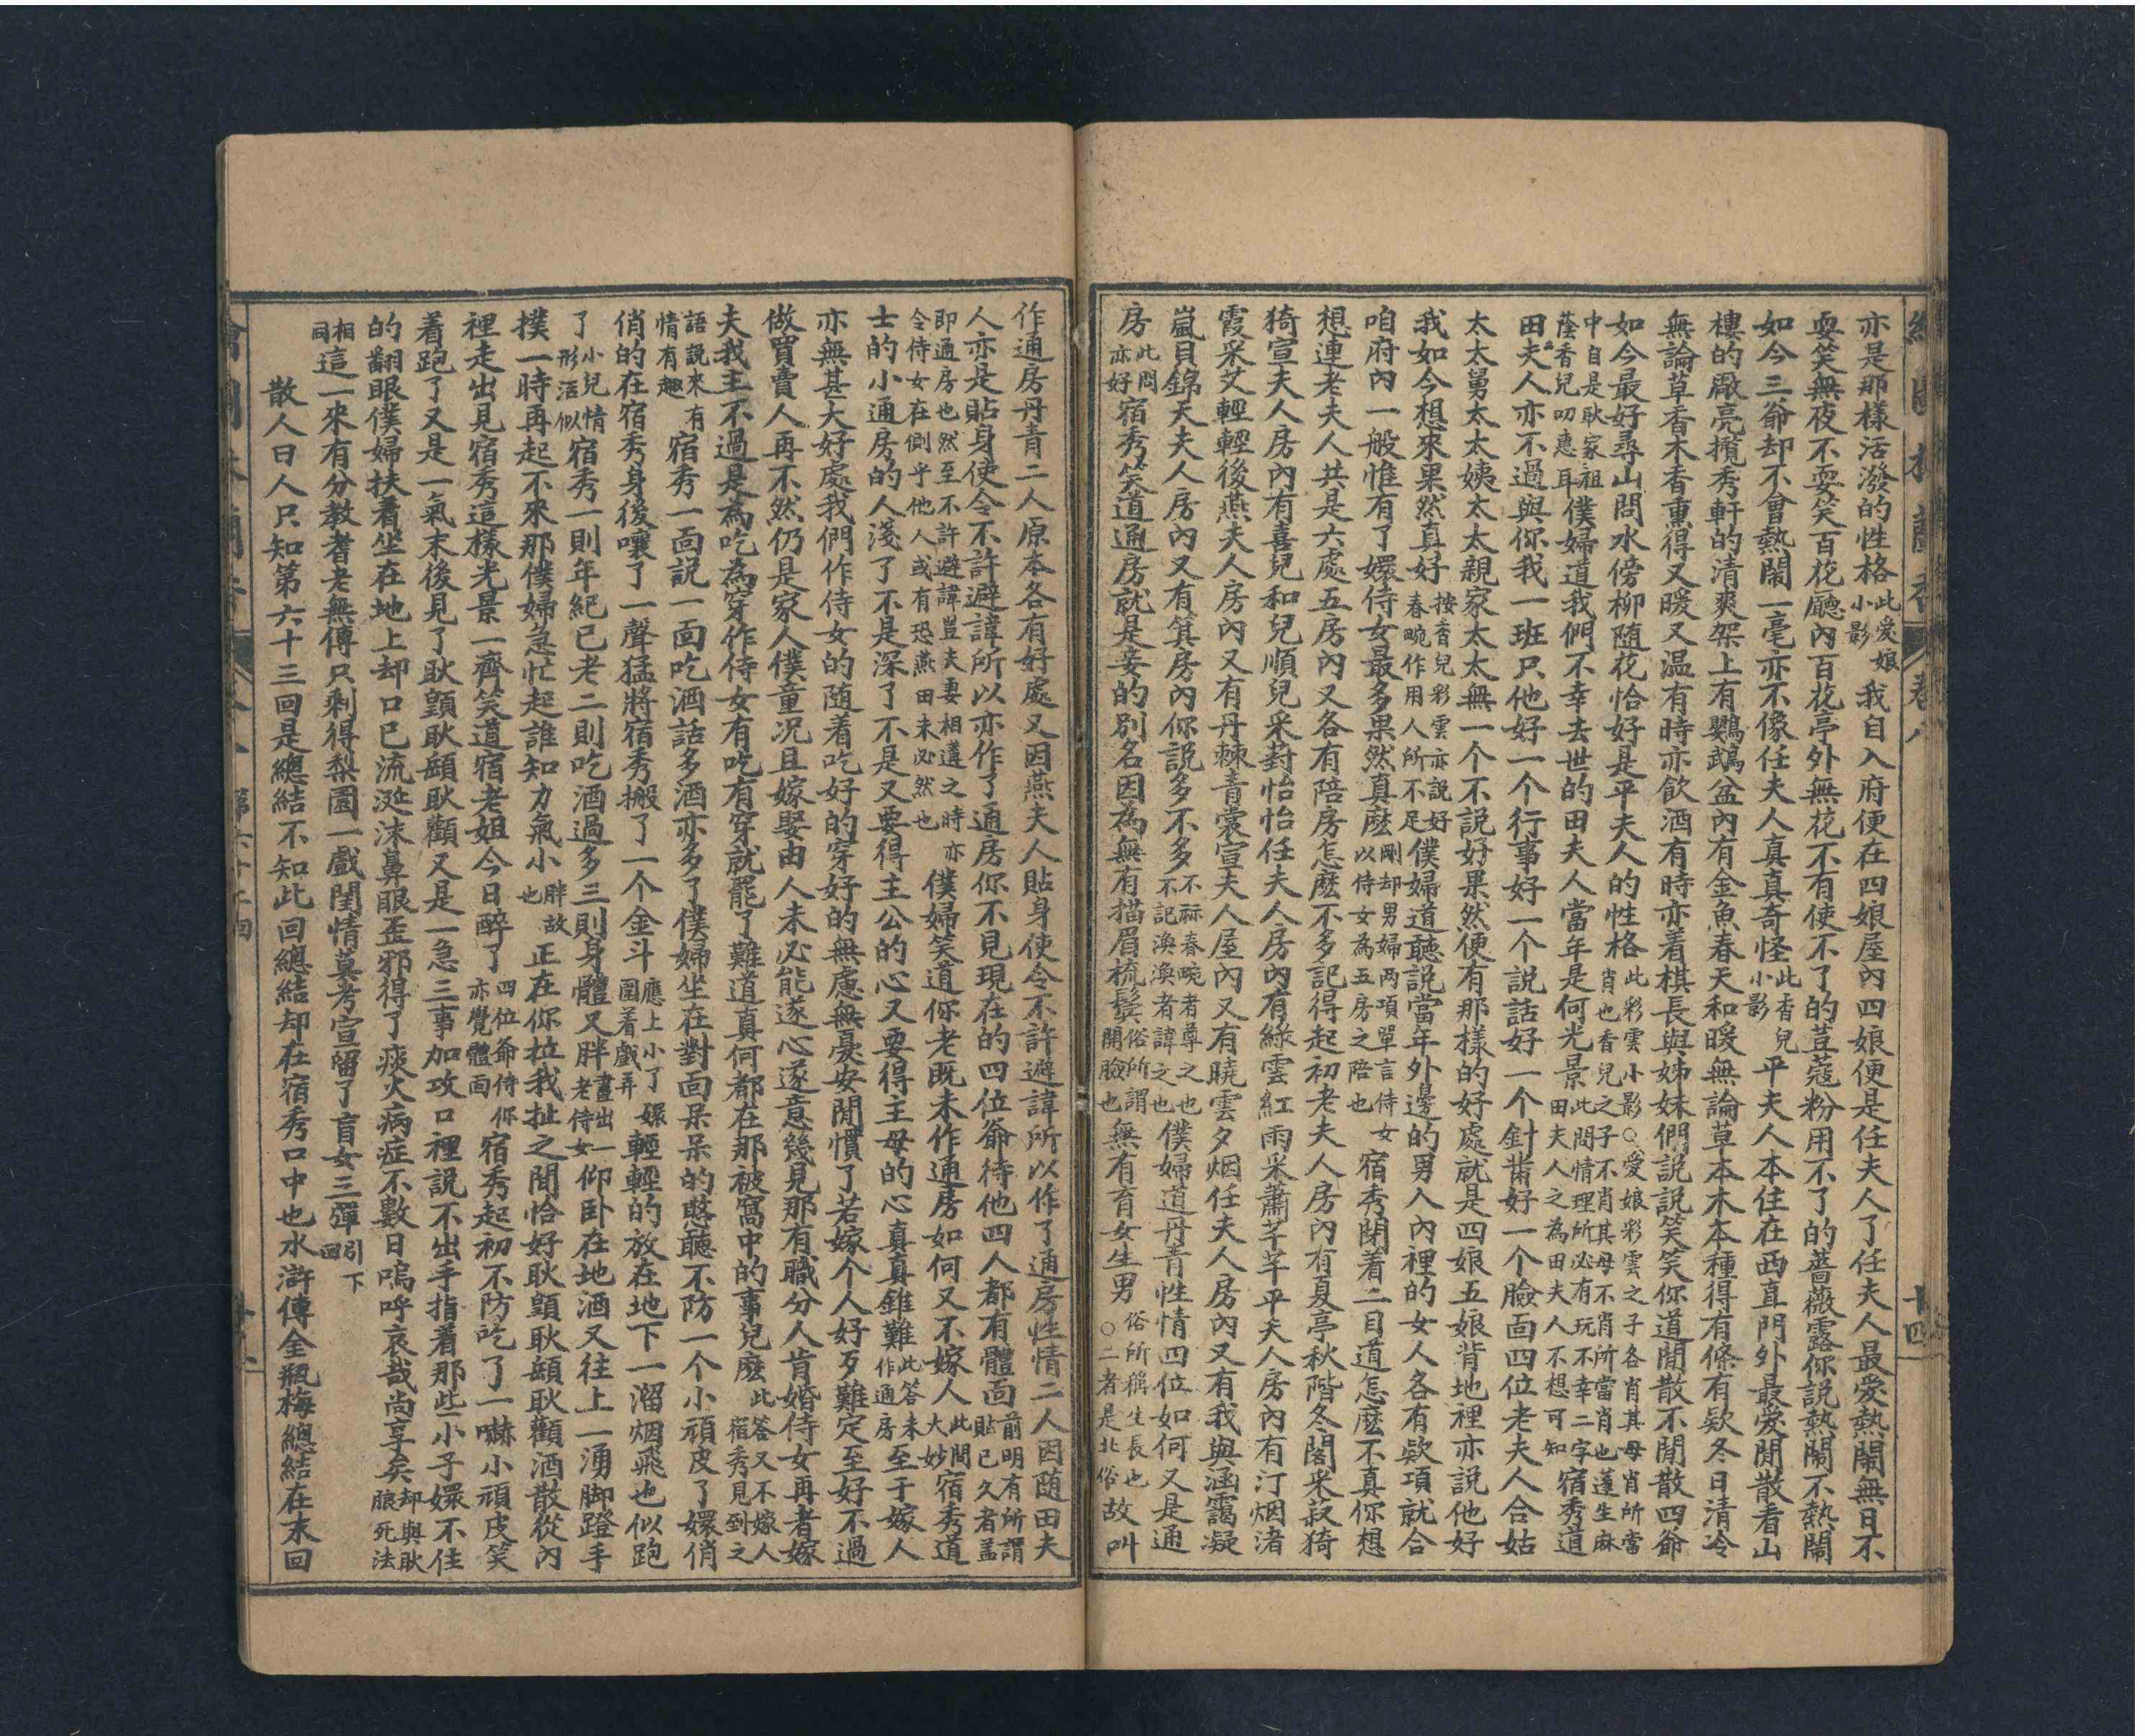 亦是那樣活潑的性格此愛娘小影我自入府便在四娘屋內四娘便是任夫人了任夫人最愛熱鬧無日不
耍笑無夜不耍笑百花廳內百花亭外無花不有使不了的荳蔻粉用不了的薔薇露你說熱鬧不熱鬧
如今三爺却不會熱鬧一毫亦不像任夫人真真奇怪此杳兒小影平夫人本住在西直門外最愛閒散看山
樓的厰亮攬秀軒的清爽架上有鸚鵡盆內有金魚春天和暖無論草本木本種得有條有欵冬日清冷
無論草香木香熏得又暖又温有時亦飲酒有時亦着棋長與姊妹們說說笑笑你道閒散不閒散四爺
如今最好尋山問水傍柳随花恰好是平夫人的性格此彩雲小影○愛娘彩雲之子各肖其母肖所當肖也香兒之子不肖其母不肖所當肖也蓬生麻
中自是耿家祖蔭香兒叨惠耳僕婦道我們不幸去世的田夫人當年是何光景此問情理所必有玩不幸二字田夫人之為田夫人不想可知宿秀道
田夫人亦不過與你我一班只他好一个行事好一个說話好一个針黹好一个臉面四位老夫人合姑
太太舅太太姨太太親家太太無一个不說好果然便有那樣的好處就是四娘五娘背地裡亦說他好
我如今想來果然真好按杳兒彩雲亦說好春畹作用人所不足僕婦道聽說當年外邊的男人內裡的女人各有欵項就合
咱府內一般惟有了嬛侍女最多果然真麽剛却男婦两項單言侍女以侍女為五房之陪也宿秀閉着二目道怎麽不真你想
想連老夫人共是六處五房內又各有陪房怎麽不多記得起初老夫人房內有夏亭秋階冬閣采菽猗
猗宣夫人房內有喜兒和兒順兒采葑怡怡任夫人房內有綠雲紅雨采蕭芊芊平夫人房內有汀烟渚
霞采艾輕輕後燕夫人房內又有丹棘青裳宣夫人屋內又有曉雲夕烟任夫人房內又有我與涵靄凝
嵐貝錦夫夫人房內又有箕房內你說多不多不祘春畹者尊之也不記渙渙者諱之也僕婦道丹青性情四位如何又是通
房此問亦好宿秀笑道通房就是妾的别名因為無有描眉梳鬓俗所謂開臉也無有育女生男俗所稱生長也○二者是北俗故叫
作通房丹青二人原本各有好處又因燕夫人貼身使令不許避諱所以作了通房性情二人因随田夫
人亦是貼身使令不許避諱所以亦作了通房你不見現在的四位爺待他四人都有體面前明有所謂貼已久者盖
即通房也然至不許避諱豈夫妻相遘之時亦令侍女在側乎他人或有恐燕田未必然也僕婦笑道你老既未作通房如何又不嫁人此間大妙宿秀道
士的小通房的人淺了不是深了不是又要得主公的心又要得主母的心真真錐難此答未作通房至于嫁人
亦無甚大好處我們作侍女的随着吃好的穿好的無慮無憂安閒慣了若嫁个人好歹難定至好不過
做買賣人再不然仍是家人僕童况且嫁娶由人未必能遂心遂意幾見那有職分人肯婚侍女再者嫁
夫我主不過是為吃為穿作侍女有吃有穿就罷了難道真何都在那被窩中的事兒麽此答又不嫁人宿秀見到之
語說來有情有趣宿秀一面説一面吃酒話多酒亦多了僕婦坐在對面呆呆的憨聽不防一个小頑皮了嬛俏
俏的在宿秀身後嚷了一聲猛將宿秀搬了一个金斗應上小了嬛圍着戲弄輕輕的放在地下一溜烟飛也似跑
了小兒情形活似宿秀一則年紀已老二則吃酒過多三則身體又胖畫出一老侍女仰卧在地酒又往上一湧脚蹬手
撲一時再起不來那僕婦急忙起誰知力氣小胖故也正在你拉我扯之間恰好耿顗耿顓耿顴酒散從內
裡走出見宿秀這樣光景一齊笑道宿老姐今日醉了四位爺侍你亦覺體面宿秀起初不防吃了一嚇小頑皮笑
着跑了又是一氣末後見了耿顗耿顓耿顴又是一急三事加攻口裡説不出手指着那些小子嬛不住
的翻眼僕婦扶着坐在地上却口已流涎沫鼻眼歪邪得了痰火病症不數日嗚呼哀哉尚享矣却與耿䐠死法
相同這一來有分教耆老無傳只剩得梨園一戲閨情莫考宣留了盲女三彈引下回
散人曰人只知第六十三回是總結不知此回總結却在宿秀口中也水滸傳金瓶梅總結在末回